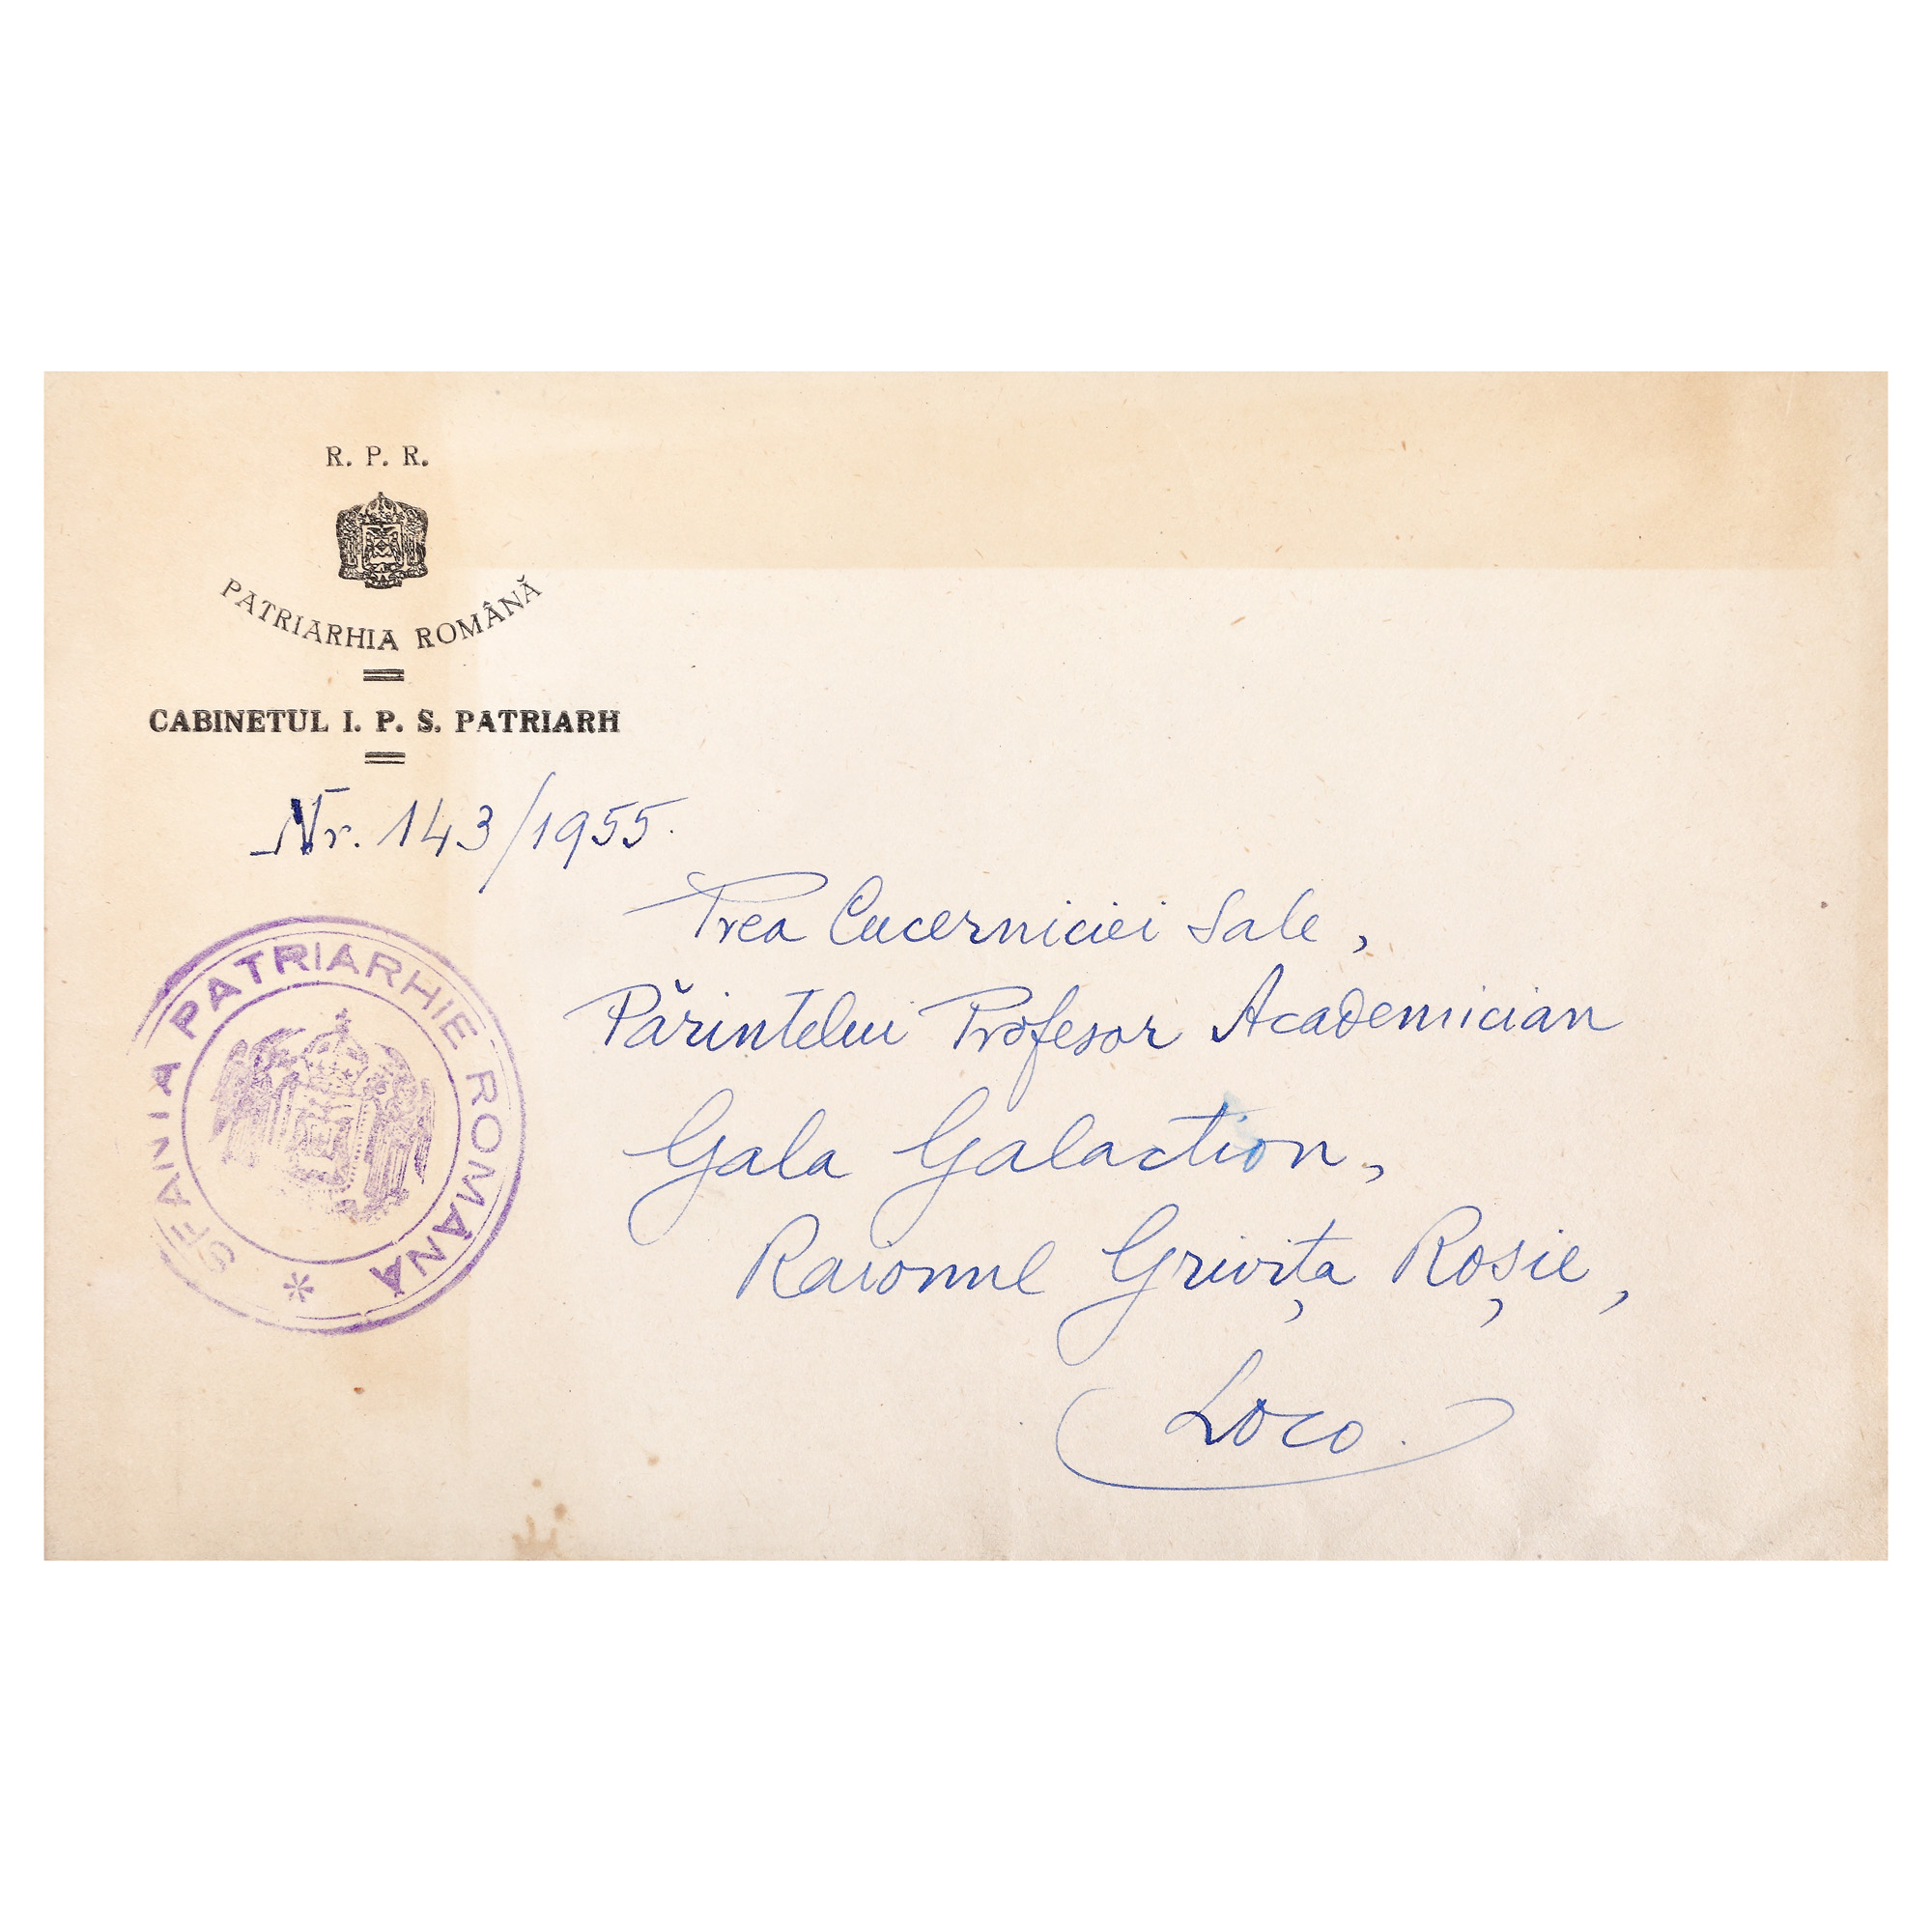 R. P. R.
PATRIARHIA ROMÂNĂ
CABINETUL I. P. S. PATRIARH
Nr. 143/1955.
Prea Cucerniciei Sale,
Părintelui Profesor Academician
Gala Galaction,
Raionul Grivița Roșie,
Loco.
SFÂNTA PATRIARHIE ROMÂNĂ *